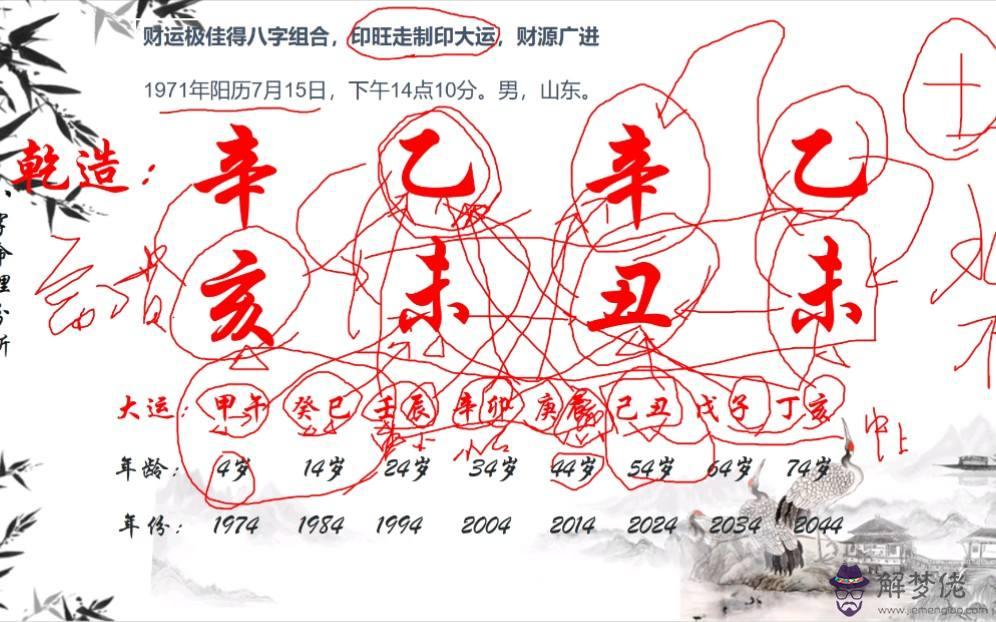 财运极佳得八字组合，印旺走制印大运，财源广进
1971年阳历7月15日，下午14点10分。男，山东。
乾造：
辛 乙 辛 乙
亥 未 丑 未
大运：甲午 癸巳 壬辰 辛卯 庚寅 己丑 戊子 丁亥
年龄：4岁 14岁 24岁 34岁 44岁 54岁 64岁 74岁
年份：1974 1984 1994 2004 2014 2024 2034 2044
土
命理分析
中上
解梦佬
www.jiemenglao.com